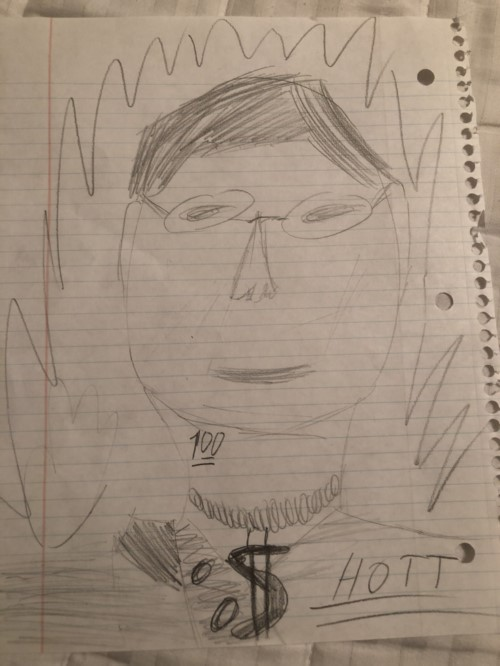 100
$
HOTT